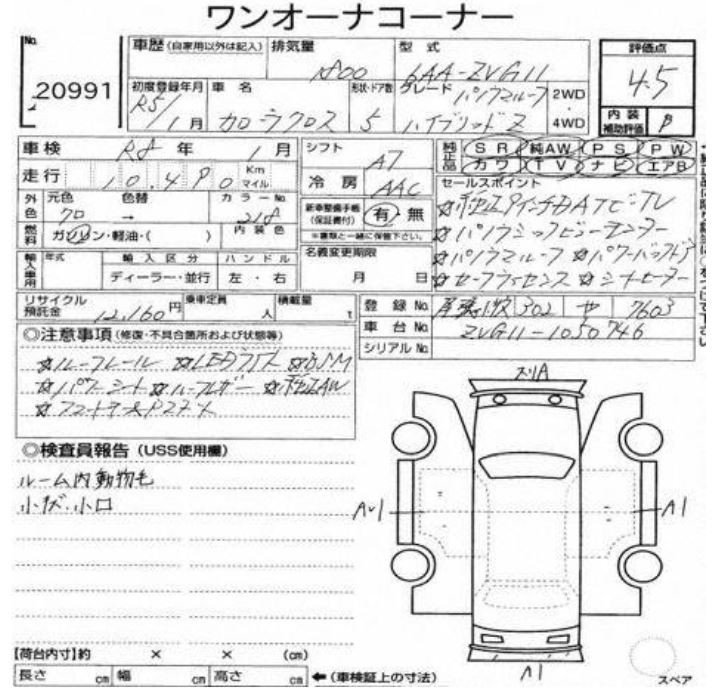 ワンオーナコーナー
No. 車歴 (自家用以外は記入) 排気量 型式 評価点
20991 1800 6AA-ZVG11 4.5
初度登録年月 車名 形状・ドア数 グレード パノラマルーフ 2WD
R5/1月 カローラクロス 5 ハイブリッドZ 4WD 内装補助評価 B
車検 R8年 1月 シフト AT 純正品 SR 純AW PS PW
カワ TV ナビ エアB
走行 10,490 Km マイル 冷房 AAC セールスポイント
外色 元色 色替 カラーNo.
クロ → 218
新車整備手帳 (保証書付) 有・無
※書類と一緒に保管下さい。
☆純正9インチDATビTV
☆パノラミックビューモンター
☆パノラマルーフ ☆パワーバックドア
☆セーフティセンス ☆シートヒーター
燃料 ガソリン・軽油・( ) 内装色
輸入車用 年式 輸入区分 ハンドル 名義変更期限
ディーラー・並行 左・右 月 日
リサイクル預託金 12,160円 乗車定員 人 積載量 t
登録No. 尾張小牧 302 せ 7603
車台No. ZVG11-1050746
シリアルNo.
◎注意事項 (修復・不具合箇所および状態等)
☆ルーフレール ☆LEDライト ☆BSM
☆パワーシート ☆ハーフレザー ☆純正AW
◎検査員報告 (USS使用欄)
ルーム内動物毛
小キズ、小凹
スリA
A1
A1
A1
【荷台内寸】約 × × (cm)
長さ cm 幅 cm 高さ cm ←(車検証上の寸法)
スペア